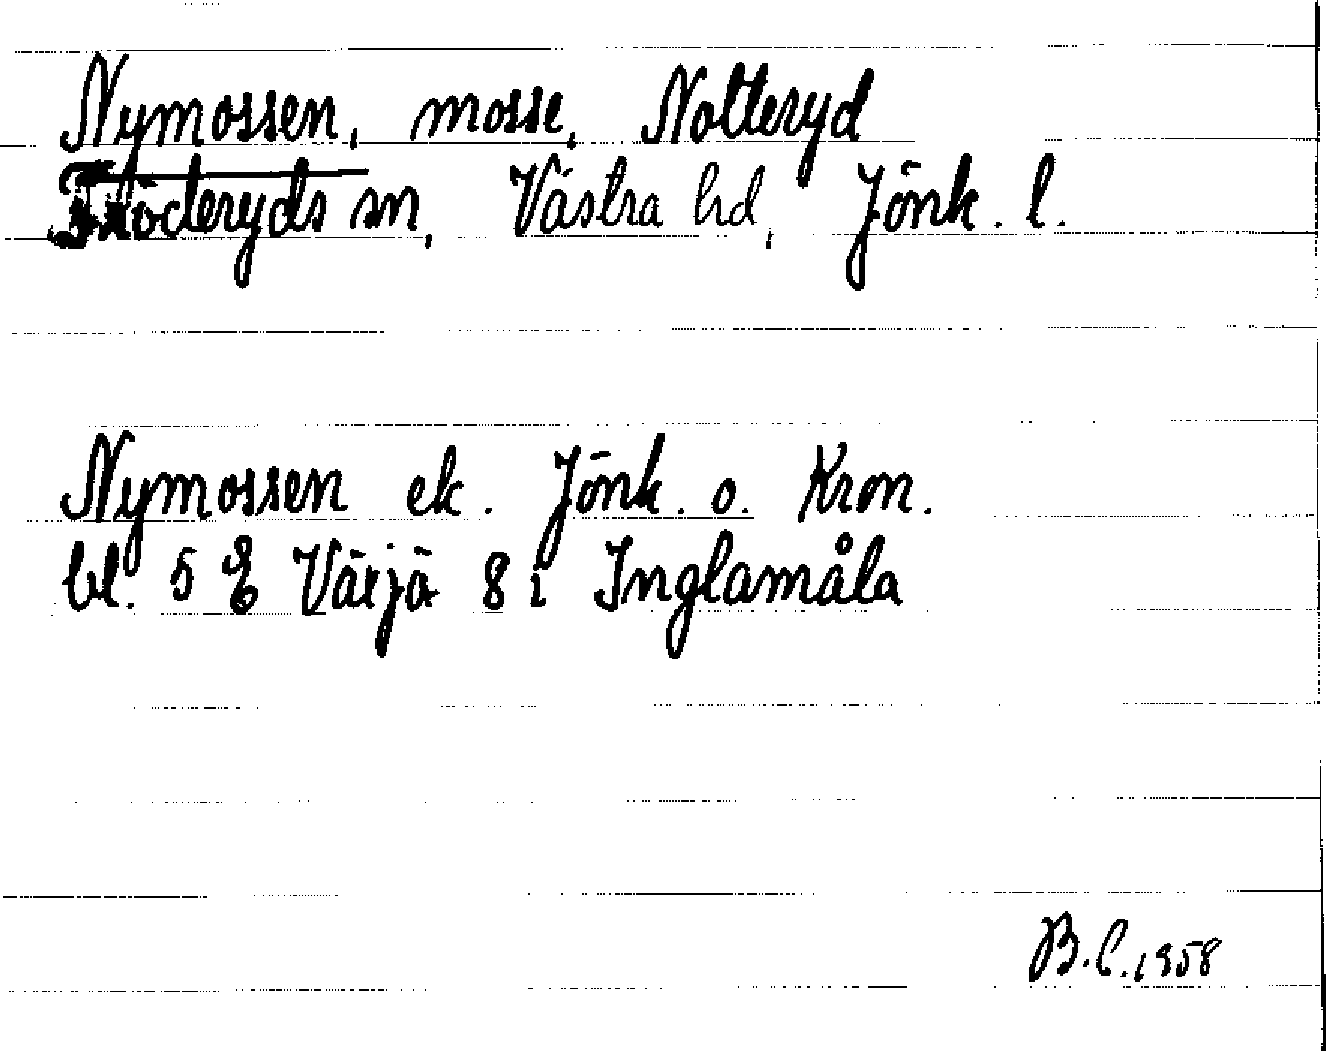 Nymossen, mosse, Nolteryd
Fröderyds sn, Västra hd, Jönk. l.
Nymossen ek. Jönk. o. Kron.
bl. 5 E Växjö 8 i Inglamåla
B.C. 1958